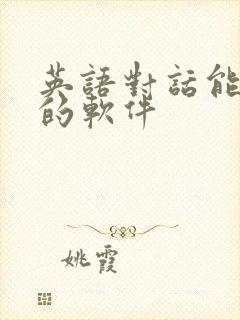 英語對話能
的軟件
姚霞